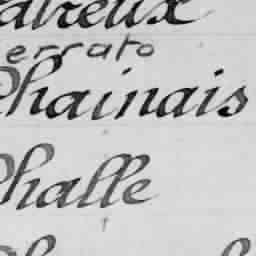 atreux
errato
Chainais
Challe